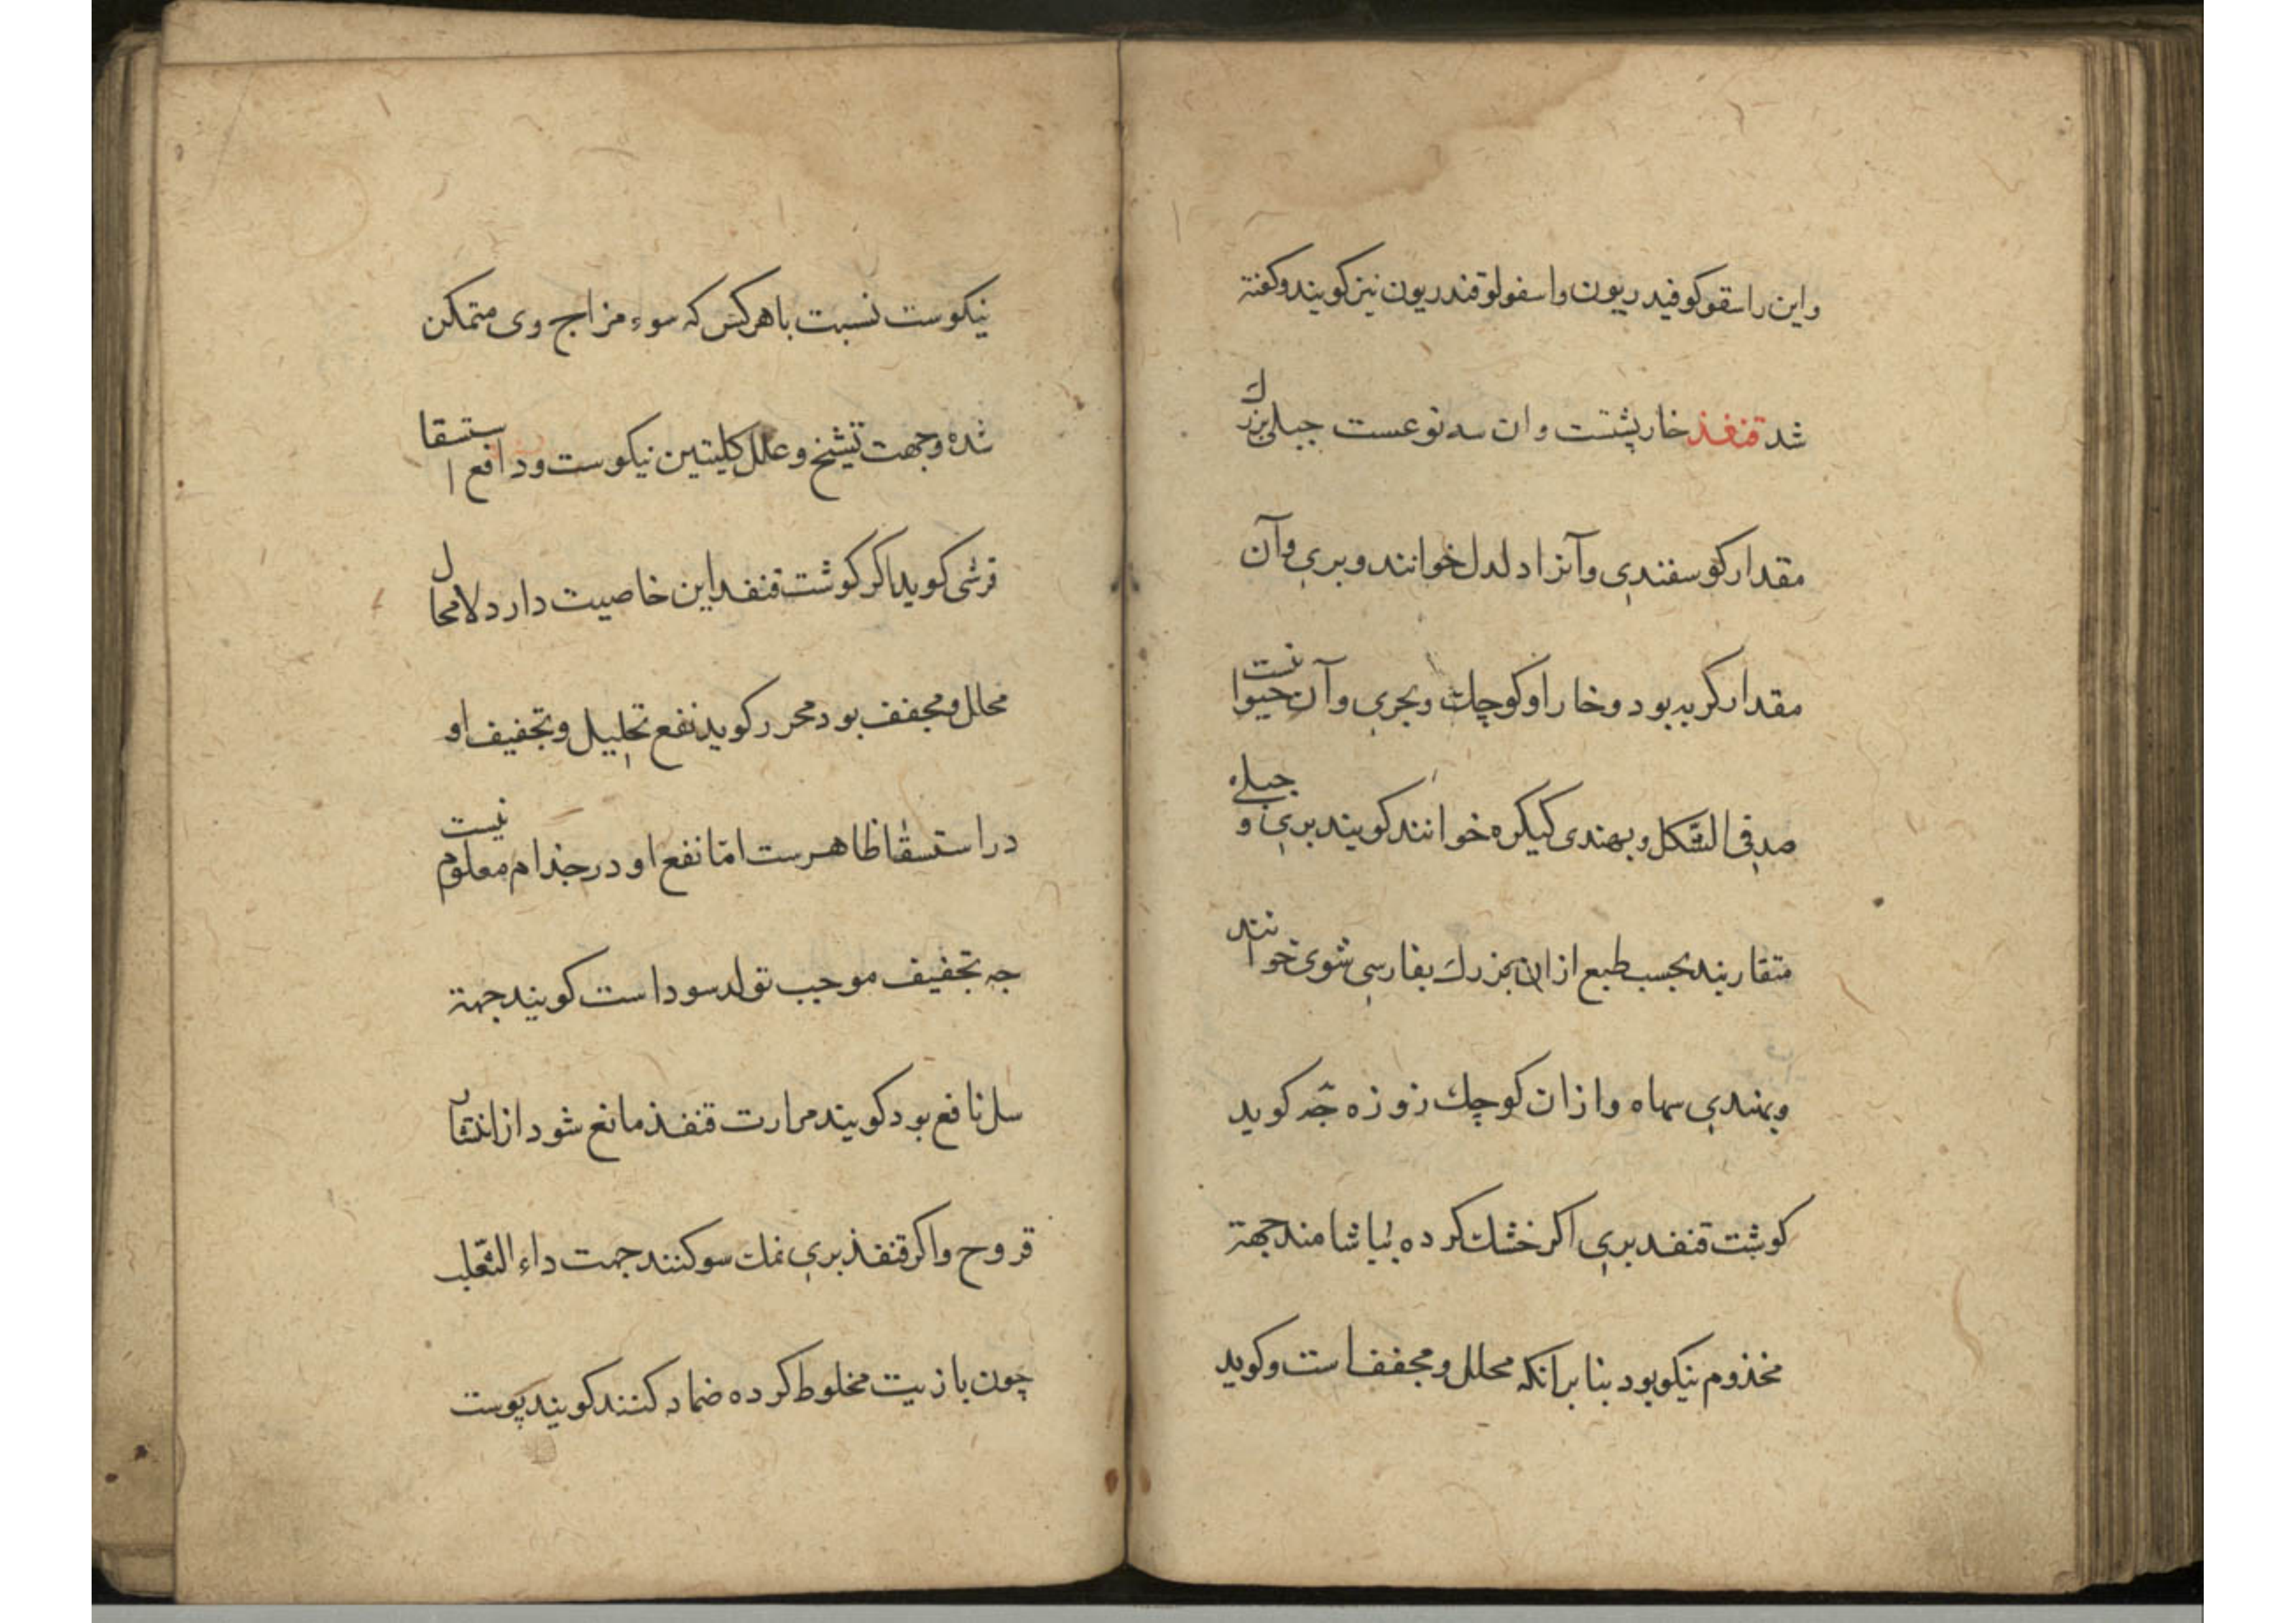 واین را سقوکوفیدریون واسفولوقندریون نیز کویند وکفته
شد قنفذ خارپشتست وان سه نوعست جبلی بزرك
مقدار کوسفندی وآنرا دلدل خوانند وبری وآن
مقدار کربه بود وخار او کوچك وبحری وآن حیوانست
صدفی الشکل وبهندی کیکره خوانند کویند بری و جبلی
متقاربند بحسب طبع ازان بزرك بفارسی شوی خوانند
وبهندی سهاه وازان کوچك زوزه جه کوید
کوشت قنفد بری اکر خشك کرده بیاشامند جهة
مخذوم نیکو بود بنا برانکه محلل ومجفف است وکوید
نیکوست نسبت باهرکس که سوء مزاج وی متمکن
شده وجهت تشنج وعلل کلیتین نیکوست ودافع استسقا
قرشی کوید اکر کوشت قنفد این خاصیت دارد لامحال
محلل ومجفف بود محرر کوید نفع تحلیل وتجفیف او
در استسقا ظاهرست امّا نفع او در جذام معلوم نیست
جه تجفیف موجب تولد سوداست کویند جهة
سل نافع بود کویند مرارت قنفذ مانع شود از انتشار
قروح واکر قنفذ بری نمك سو کنند جهت داء الثعلب
چون با زیت مخلوط کرده ضماد کنند کویند پوست